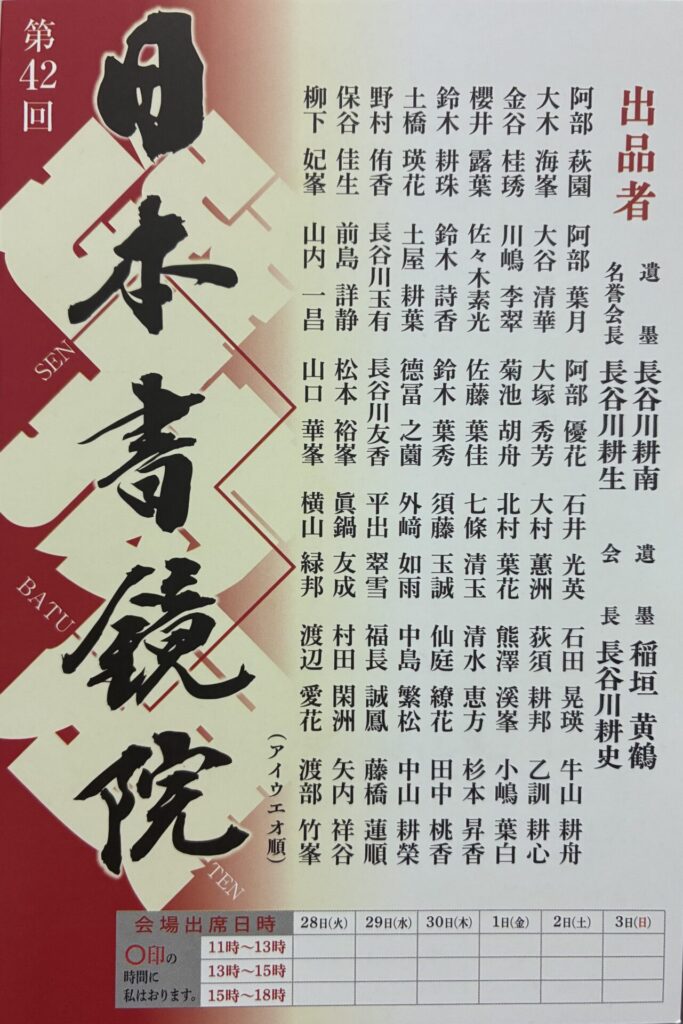 第42回
日本書鏡院
SEN
BATU
TEN
出品者
遺墨 長谷川耕南
遺墨 稲垣 黄鶴
名誉会長 長谷川耕生
会長 長谷川耕史
阿部 萩園
阿部 葉月
阿部 優花
石井 光英
石田 晃瑛
牛山 耕舟
大木 海峯
大谷 清華
大塚 秀芳
大村 蕙洲
荻須 耕邦
乙訓 耕心
金谷 桂琇
川嶋 李翠
菊池 胡舟
北村 葉花
熊澤 溪峯
小嶋 葉白
櫻井 露葉
佐々木素光
佐藤 葉佳
七條 清玉
清水 恵方
杉本 昇香
鈴木 耕珠
鈴木 詩香
鈴木 葉秀
須藤 玉誠
仙庭 繚花
田中 桃香
土橋 瑛花
土屋 耕葉
德冨 之薗
外﨑 如雨
中島 繁松
中山 耕榮
野村 侑香
長谷川玉有
長谷川友香
平出 翠雪
福長 誠鳳
藤橋 蓮順
保谷 佳生
前島 詳静
松本 裕峯
眞鍋 友成
村田 閑洲
矢内 祥谷
柳下 妃峯
山内 一昌
山口 華峯
横山 緑邦
渡辺 愛花
渡部 竹峯
（アイウエオ順）
会場出席日時 28日(火) 29日(水) 30日(木) 1日(金) 2日(土) 3日(日)
〇印の
時間に
私はおります。
11時〜13時
13時〜15時
15時〜18時